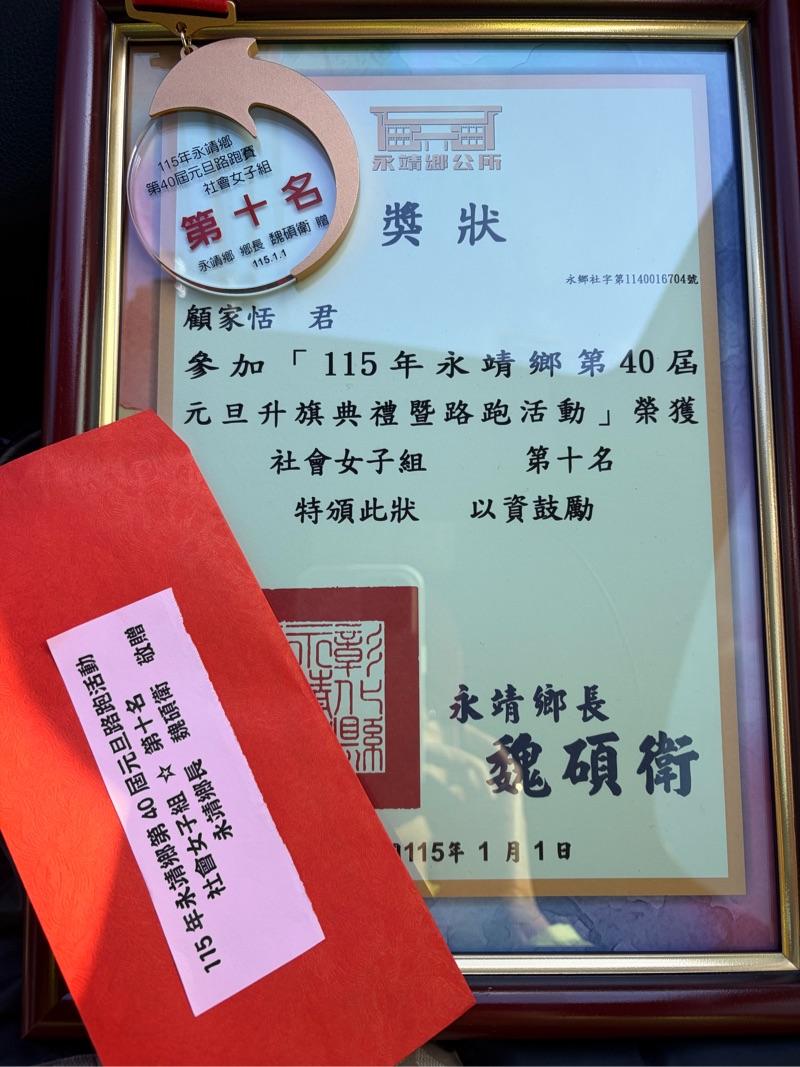 115年永靖鄉
第40屆元旦路跑賽
社會女子組
第十名
永靖鄉 鄉長 魏碩衛 贈
115.1.1
永靖鄉公所
獎狀
永鄉社字第1140016704號
顧家恬 君
參加「115年永靖鄉第40屆
元旦升旗典禮暨路跑活動」榮獲
社會女子組 第十名
特頒此狀 以資鼓勵
彰化縣
永靖
永靖鄉長
魏碩衛
115年1月1日
115年永靖鄉第40屆元旦路跑活動
社會女子組☆第十名
永靖鄉長 魏碩衛 敬贈